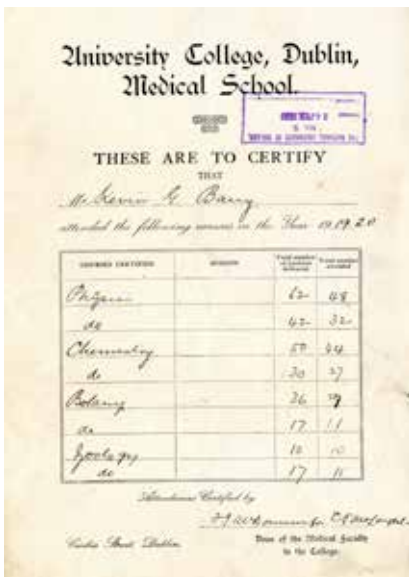 University College, Dublin,
Medical School.
THESE ARE TO CERTIFY
THAT
Mr Kevin G. Barry
attended the following courses in the Year 1919.20
COURSES CERTIFIED Total number of lectures delivered Total number attended
Physics 62 48
do 42 32
Chemistry 50 44
do 30 27
Botany 36
do 17 11
Zoology 10 10
do 17 11
Attendance Certified by
Cecilia Street, Dublin
Dean of the Medical Faculty
in the College.